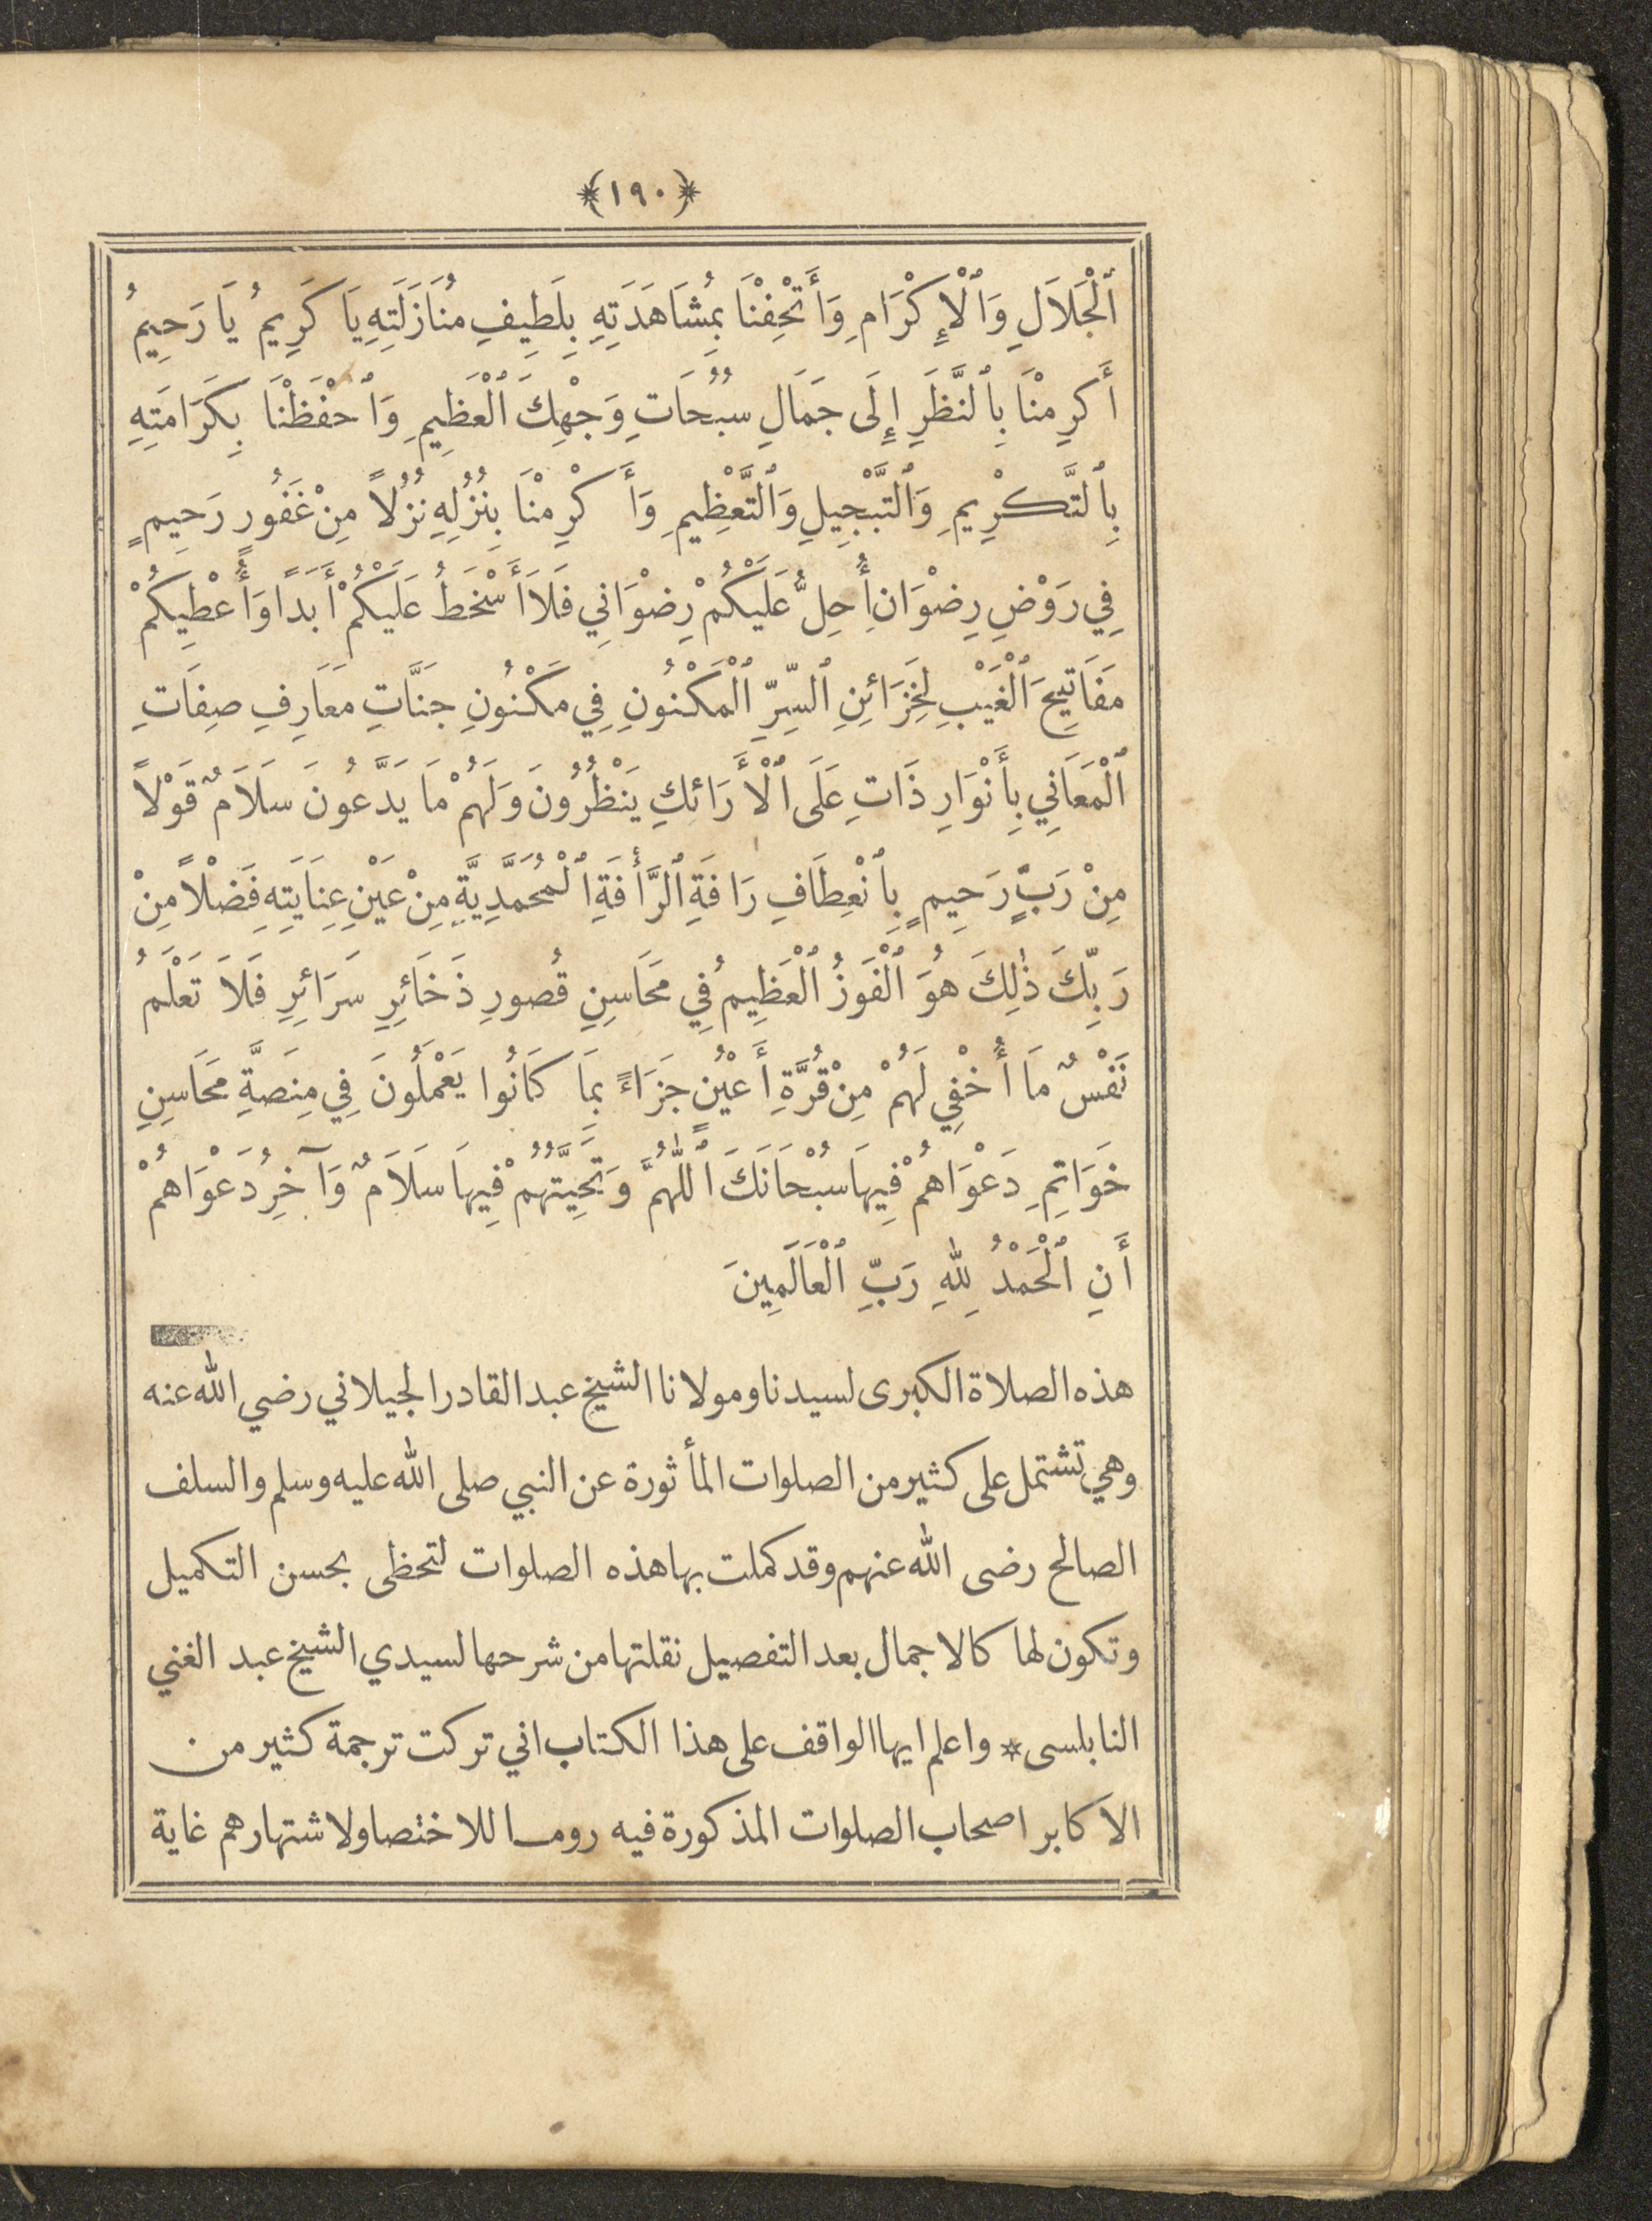 ﴿١٩٠﴾
ٱلْجَلَالِ وَٱلْإِكْرَامِ وَأَتْحِفْنَا بِمُشَاهَدَتِهِ بِلَطِيفِ مُنَازَلَتِهِ يَا كَرِيمُ يَا رَحِيمُ
أَكرِمْنَا بِٱلنَّظَرِ إِلَى جَمَالِ سُبُحَاتِ وَجْهِكَ ٱلْعَظِيمِ وَٱحْفَظْنَا بِكَرَامَتِهِ
بِٱلتَّكْرِيمِ وَٱلتَّبْجِيلِ وَٱلتَّعْظِيمِ وَأَكْرِمْنَا بِنُزُلِهِ نُزُلاً مِنْ غَفُورٍ رَحِيمٍ
فِي رَوْضِ رِضْوَانِ أُحِلُّ عَلَيْكُمْ رِضْوَانِي فَلَا أَسْخَطُ عَلَيْكُمْ أَبَدًا وَأُعْطِيكُمْ
مَفَاتِيحَ ٱلْغَيْبِ لِخَزَائِنِ ٱلسِّرِّ ٱلْمَكْنُونِ فِي مَكْنُونِ جَنَّاتِ مَعَارِفِ صِفَاتِ
ٱلْمَعَانِي بِأَنْوَارِ ذَاتِ عَلَى ٱلْأَرَائِكِ يَنْظُرُونَ وَلَهُمْ مَا يَدَّعُونَ سَلَامٌ قَوْلاً
مِنْ رَبٍّ رَحِيمٍ بِٱنْعِطَافِ رَافَةِ ٱلرَّأْفَةِ ٱلْمُحَمَّدِيَّةِ مِنْ عَيْنِ عِنَايَتِهِ فَضْلاً مِنْ
رَبِّكَ ذٰلِكَ هُوَ ٱلْفَوْزُ ٱلْعَظِيمُ فِي مَحَاسِنِ قُصُورِ ذَخَائِرِ سَرَائِرِ فَلَا تَعْلَمُ
نَفْسٌ مَا أُخْفِي لَهُمْ مِنْ قُرَّةِ أَعْيُنٍ جَزَاءً بِمَا كَانُوا يَعْمَلُونَ فِي مِنَصَّةِ مَحَاسِنِ
خَوَاتِمِ دَعْوَاهُمْ فِيهَا سُبْحَانَكَ ٱللّٰهُمَّ وَتَحِيَّتُهُمْ فِيهَا سَلَامٌ وَآخِرُ دَعْوَاهُمْ
أَنِ ٱلْحَمْدُ لِلّٰهِ رَبِّ ٱلْعَالَمِينَ
هذه الصلاة الكبرى لسيدنا ومولانا الشيخ عبد القادر الجيلاني رضي الله عنه
وهي تشتمل على كثير من الصلوات المأثورة عن النبي صلى الله عليه وسلم والسلف
الصالح رضى الله عنهم وقد كملت بها هذه الصلوات لتحظى بحسن التكميل
وتكون لها كالاجمال بعد التفصيل نقلتها من شرحها لسيدي الشيخ عبد الغني
النابلسى * واعلم ايها الواقف على هذا الكتاب اني تركت ترجمة كثير من
الاكابر اصحاب الصلوات المذكورة فيه روما للاختصا ولاشتهارهم غاية